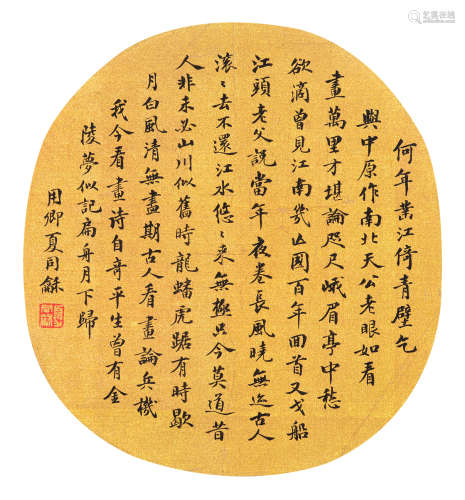 何年業江倚青壁乞
與中原作南北天公老眼如看
畫萬里才堪論咫尺峨眉亭中愁
欲滴曾見江南幾亡國百年回首又戈船
江頭老父說當年夜卷長風曉無迹古人
滚〻去不還江水悠〻來無極只今莫道昔
人非未必山川似舊時龍蟠虎踞有時歇
月白風清無盡期古人看畫論兵機
我今看畫詩自奇平生曾有金
陵夢似記扁舟月下歸
用卿夏同龢